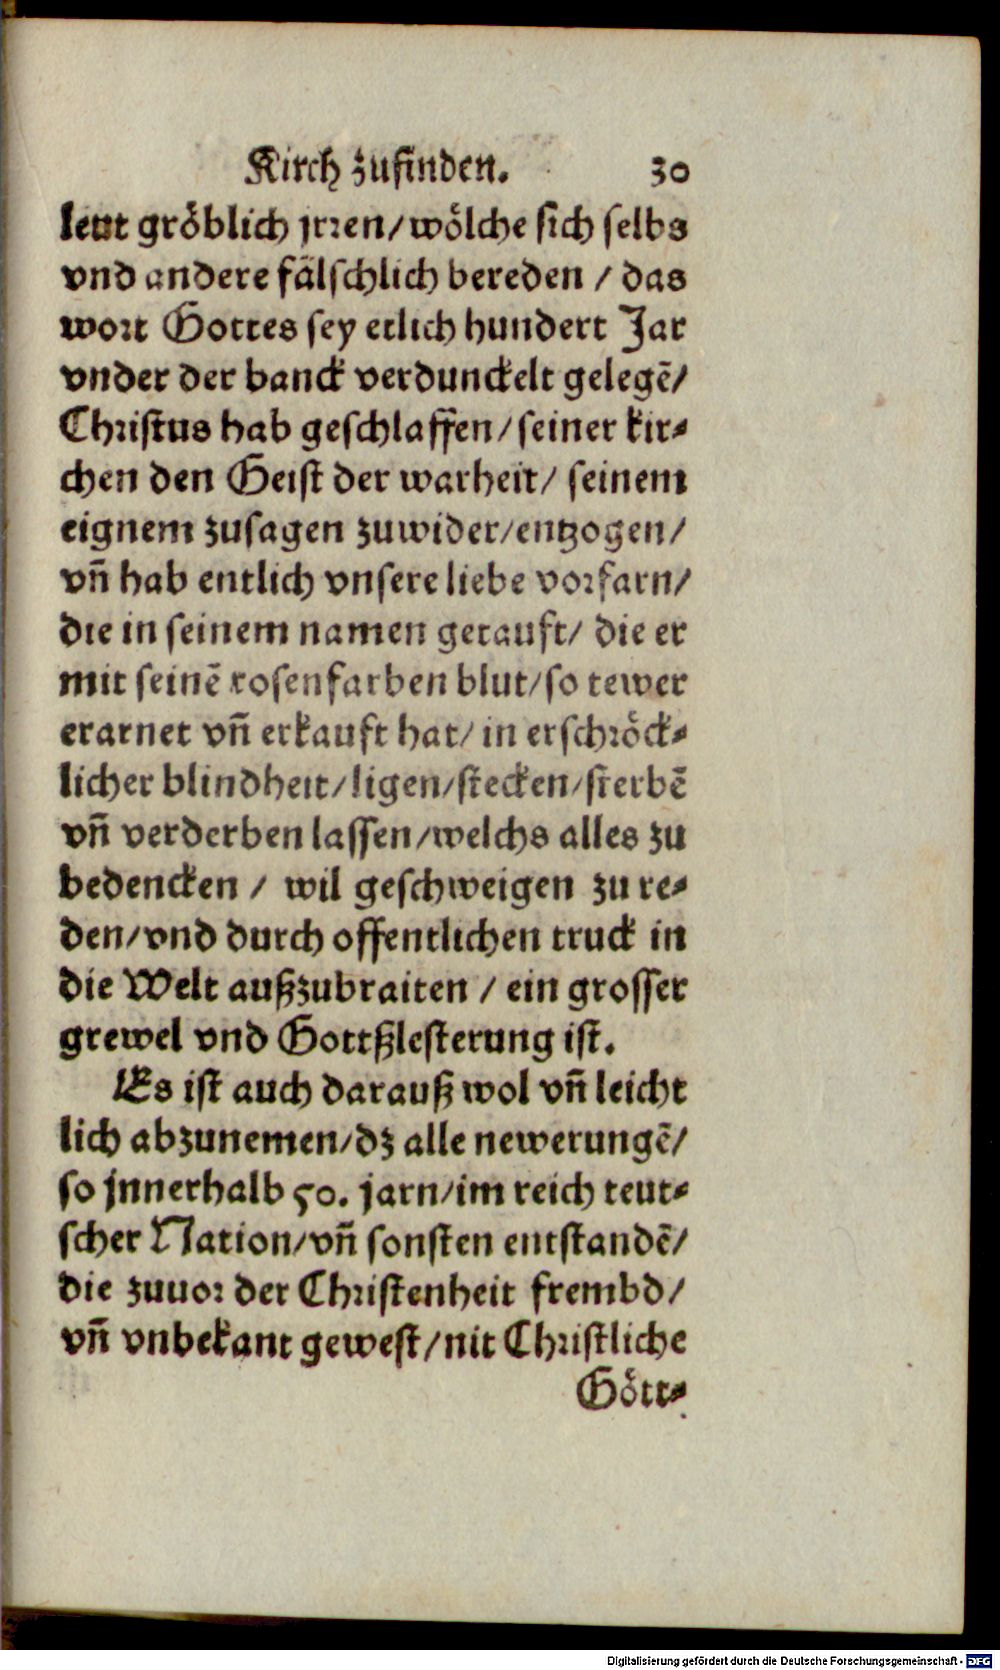 Kirch zufinden. 30
leut gröblich jrren/ wölche sich selbs
vnd andere fälschlich bereden / das
wort Gottes sey etlich hundert Jar
vnder der banck verdunckelt gelegē/
Christus hab geschlaffen/ seiner kir-
chen den Geist der warheit/ seinem
eignem zusagen zuwider/ entzogen/
vñ hab entlich vnsere liebe vorfarn/
die in seinem namen getauft/ die er
mit seinē rosenfarben blut/ so tewer
erarnet vñ erkauft hat/ in erschröck-
licher blindheit/ ligen/ stecken/ sterbē
vñ verderben lassen/ welchs alles zu
bedencken / wil geschweigen zu re-
den/ vnd durch offentlichen truck in
die Welt außzubraiten / ein grosser
grewel vnd Gottßlesterung ist.
Es ist auch darauß wol vñ leicht
lich abzunemen/ dz alle newerungē/
so jnnerhalb 50. jarn/ im reich teut-
scher Nation/ vñ sonsten entstandē/
die zuuor der Christenheit frembd/
vñ vnbekant gewest/ nit Christliche
Gött-
Digitalisierung gefördert durch die Deutsche Forschungsgemeinschaft - DFG